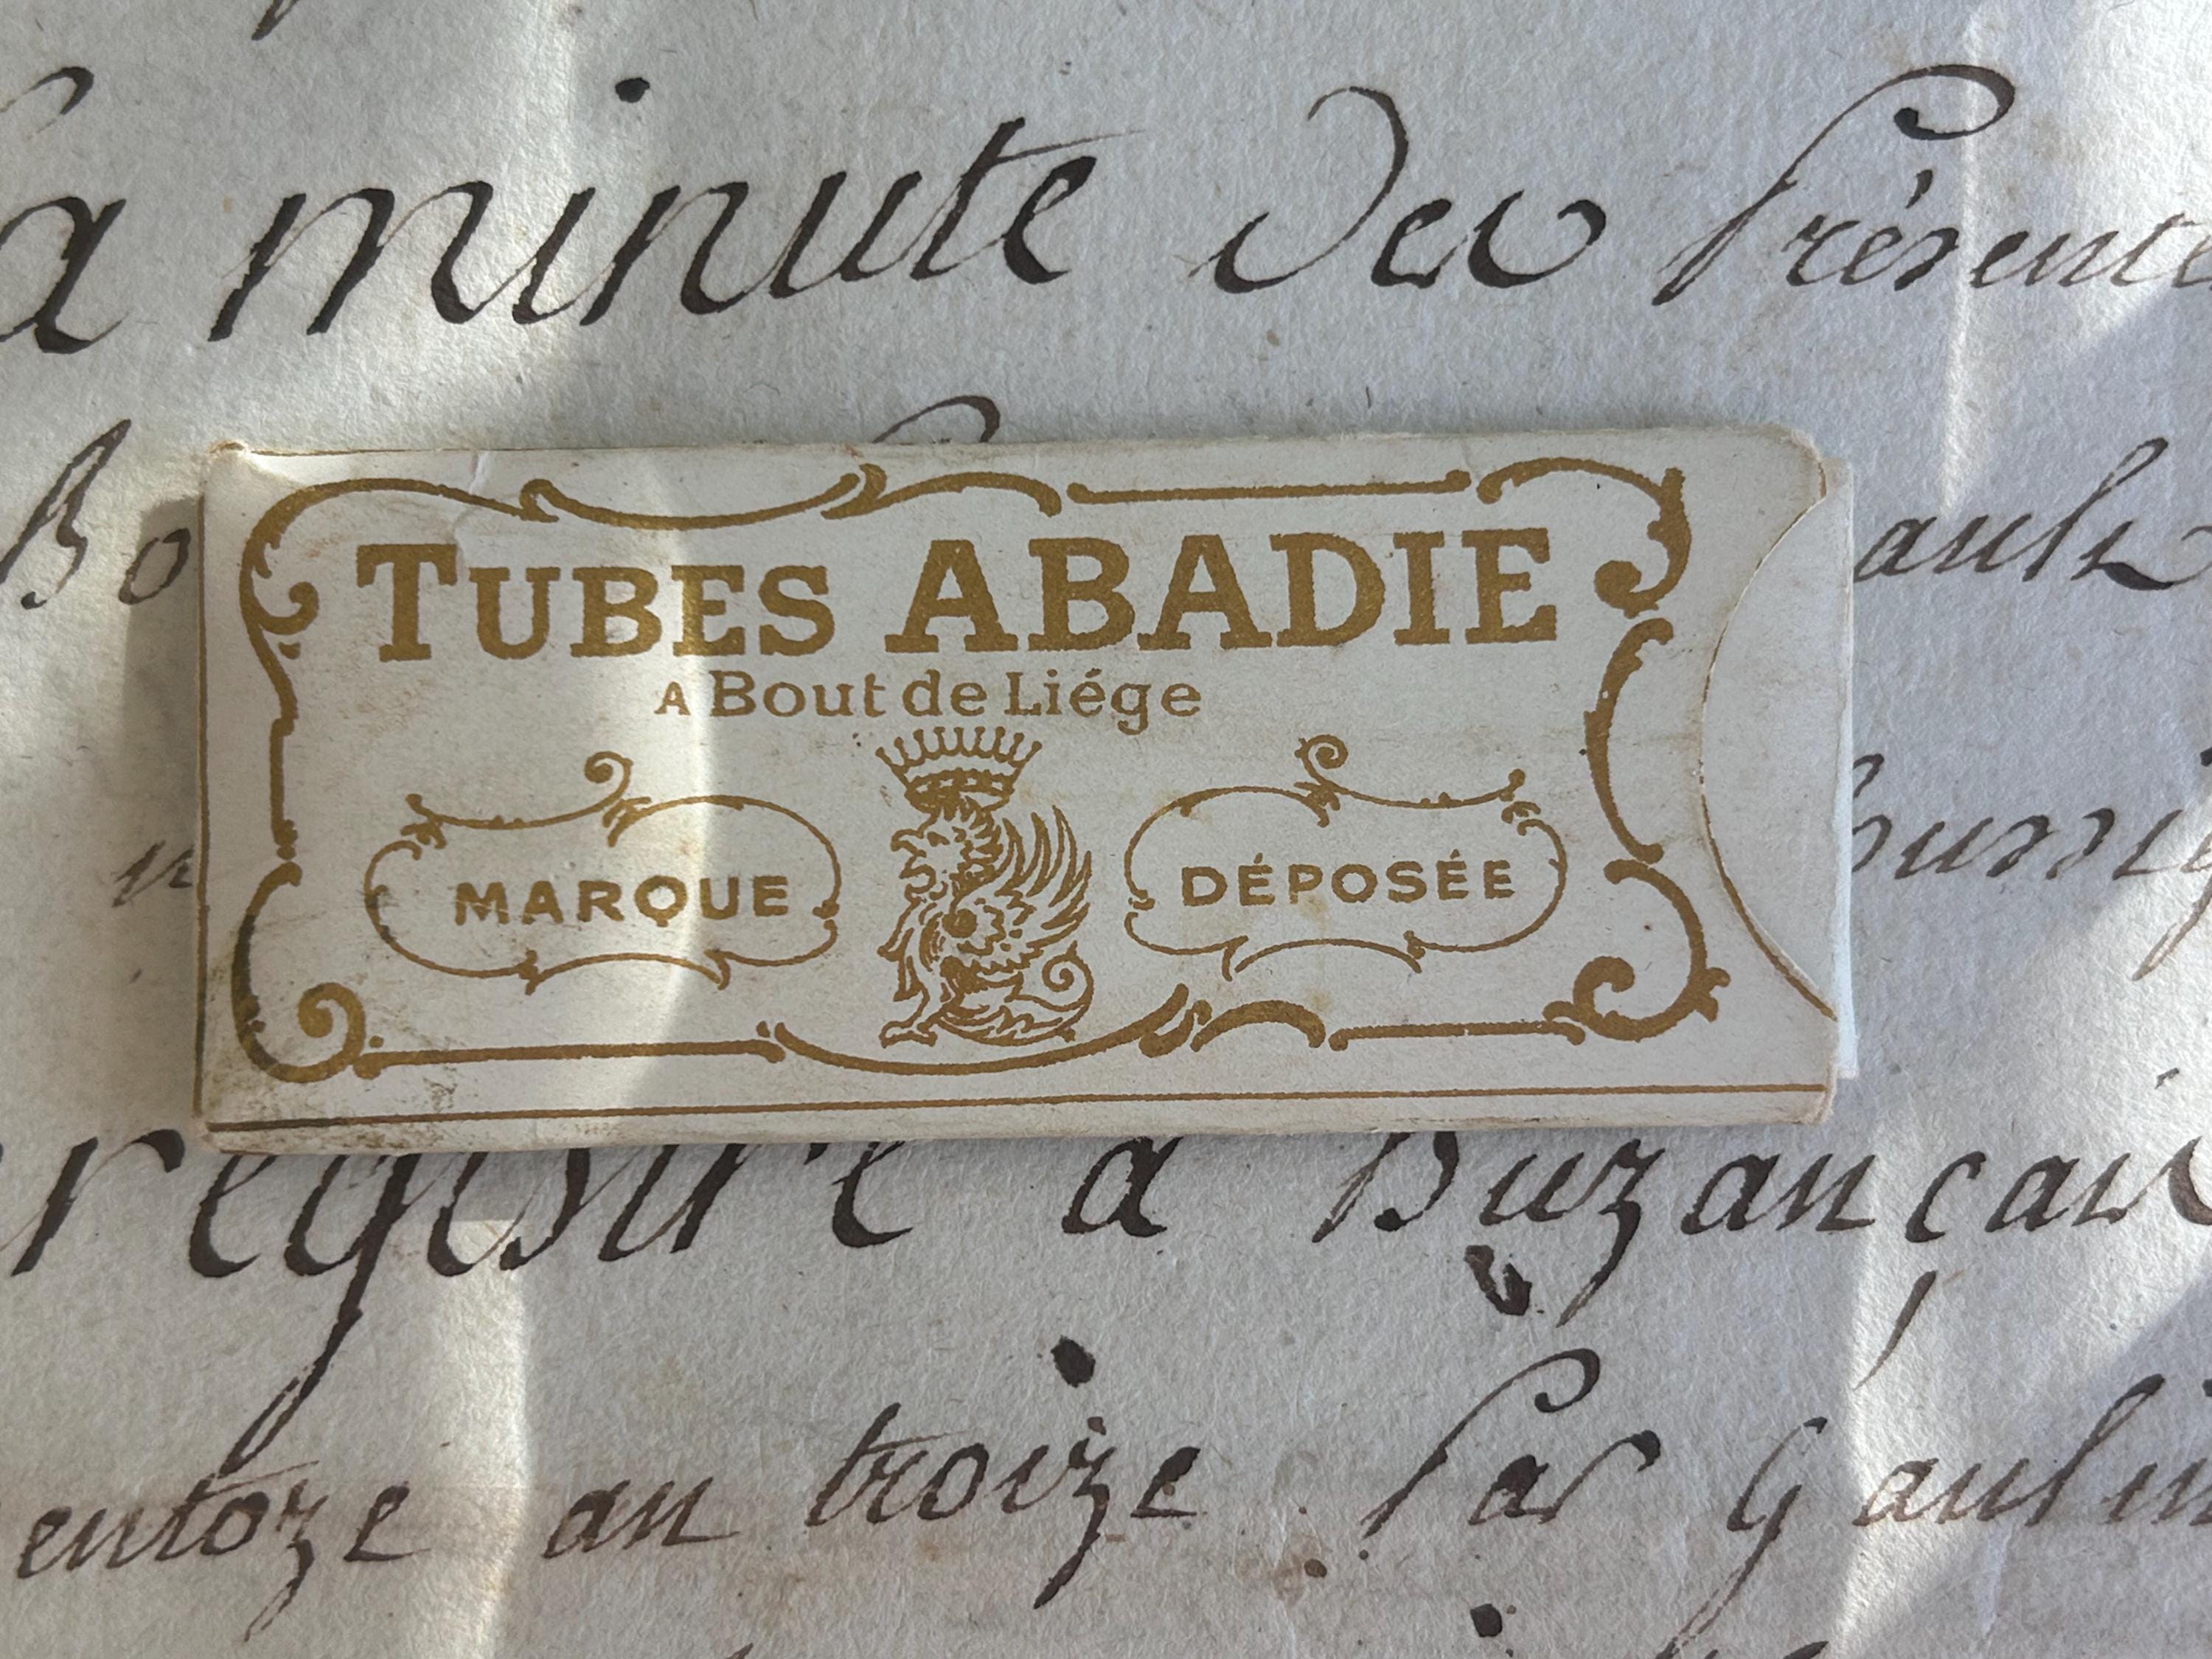 a minute des Présente
Bo
TUBES ABADIE
A Bout de Liége
MARQUE
DÉPOSÉE
regístre a Buzançais
ventoze an troize Par Gaulin